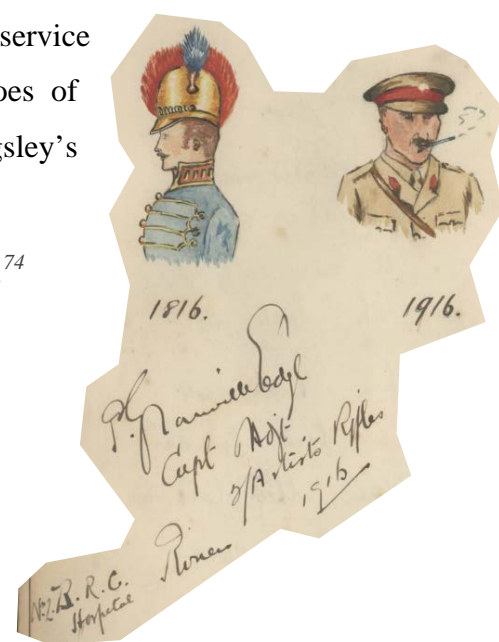 service
oes of
gsley's
74
1816.
1916.
P. Granville Edge
Capt Adjt.
2/Artists Rifles
1916
No. 2. B. R. C.
Hospital
Rouen